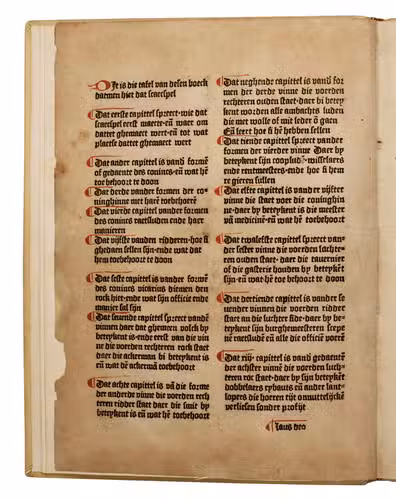 Dit is die tafel van desen boeck
datmen hiet dat scaecspel
Dat eerste capittel spreect wie dat
scaecspel eerst maecte eñ waer om
dattet ghemaect wert eñ tot wat
plaetse dattet ghemaect wert
Dat ander capittel is vandē formē
of gedaente des conincs eñ wat hē
toe behoort te doen
Dat derde vander formen der co-
ninghinne met haer toebehoerē
Dat vierde capittel vander formen
des conincs raetsluden ende haer
manieren
Dat vijfste vanden ridderen hoe si
ghedaen sellen sijn ende wat dat
hem toebehoort te doen
Dat seste capittel is vander formē
des conincs vicarius diemen den
rock hiet ende wat sijn officie ende
manier sal sijn
Dat seuende capittel spreect vandē
vinnen daer dat ghemeen volck by
beteykent is ende eerst van die vin
ne die voerden rechteren rock staet
daer die ackerman bi beteykent is
eñ wat dē ackermā toebehoort
Dat achte capittel is vā die forme
der anderde vinne die voerden rech
teren ridder staet daer die smit by
beteykent is eñ wat hē toebehoort
Dat neghende capittel is vandē for
men der derde vinne die voerden
rechteren ouden staet daer bi betey
kent worden alle ambachts luden
die met wolle of mit leder ō gaen
Eñ leert hoe si hē hebben sellen
Dat tiende capittel spreect vander
formen der vierder vinne Daer by
beteykent sijn coopludē wisselaers
ende rentmeesters ende hoe si hem
re gieren sullen
Dat elfte capittel is vander vijfter
vinne die staet voer die coninghin
ne daer by beteykent is die meester
vā medicinē eñ wat hē toebehoort
Dat twalefste capittel spreect van
der sester vinne die voerden luchte-
ren ouden staet daer die tauernier
of die gasterie houden by beteykēt
sijn eñ wat hē toebehoort te doen
Dat dertiende capittel is vander se
uender vinnen die voerden ridder
staet an die luchter side daer by be-
teykent sijn burghemeesteren scepe
nē raetsludē eñ alle die officie voerē
Dat xiiij capittel is vandē gedaentē
der achster vinnē die voerden luch-
teren roc staet daer by sijn beteykēt
dobbelaers rybauts eñ ander lant-
lopers die horren tijt onnuttelijckē
verliesen sonder profijt
Laus deo